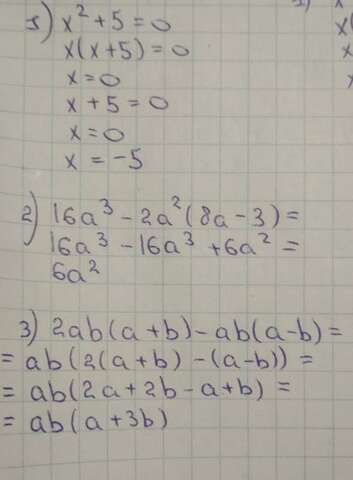 1) x² + 5 = 0
x(x+5) = 0
x = 0
x + 5 = 0
x = 0
x = -5
2) 16a³ - 2a²(8a - 3) =
16a³ - 16a³ + 6a² =
6a²
3) 2ab(a+b) - ab(a-b) =
= ab(2(a+b) - (a-b)) =
= ab(2a + 2b - a + b) =
= ab(a + 3b)